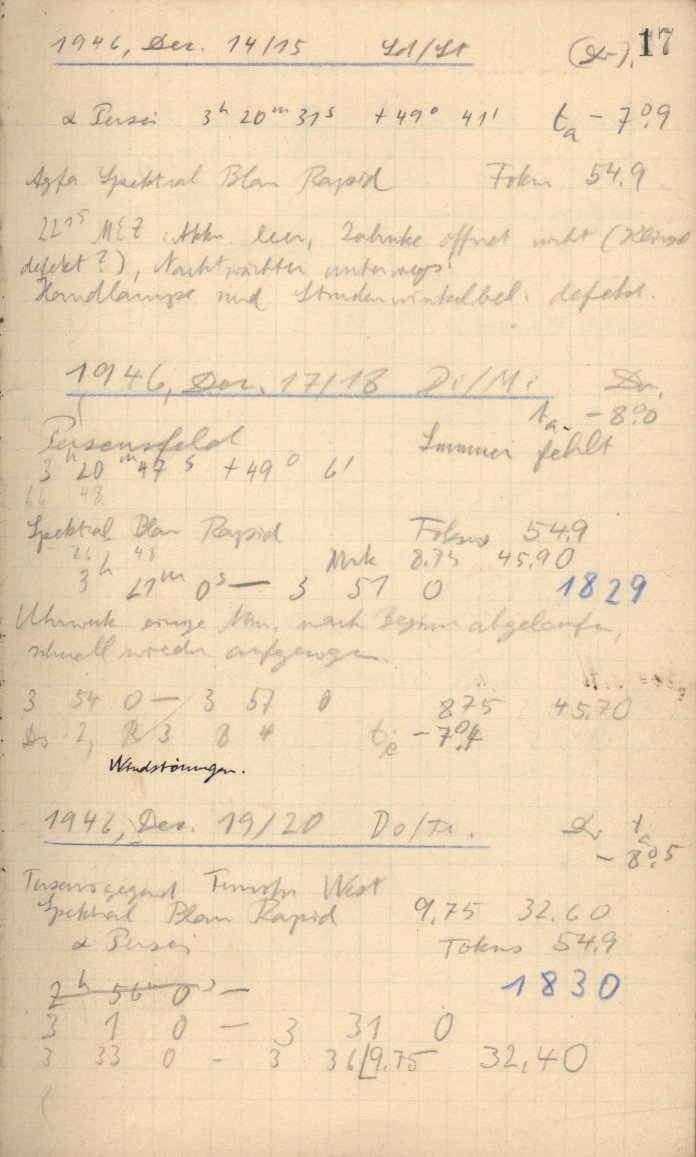 17
1946, Dez. 14/15 Sa/So (Dr.)
α Persei 3h 20m 31s +49° 41' ta - 7°.9
Agfa Spektral Blau Rapid Fokus 54.9
22 15 MEZ : Akku leer, öffnet nicht (Klingel
defekt?), Nachtwächter unterwegs.
Handlampe und Stundenwinkelbel. defekt.
1946, Dez. 17/18 Di/Mi Dr.
ta. - 8°.0
Perseusfeld Summer fehlt
3h 20m 47s +49° 6'
26 48
Spektral Blau Rapid Fokus 54.9
26 48 8.75 45.90
3h 21m 0s — 3 51 0 1829
Uhrwerk einige Min. nach Beginn abgelaufen,
schnell wieder aufgezogen.
3 54 0 — 3 57 0 8.75 45.70
2, B 3 B 4 te - 7°.4
Windstörungen.
1946, Dez. 19/20 Do/Fr. Dr ta
- 8°.5
Perseusgegend Fernrohr West
Spektral Blau Rapid 9.75 32.60
α Persei Fokus 54.9
2h 56 0s — 1830
3 1 0 — 3 31 0
3 33 0 - 3 36 9.75 32,40